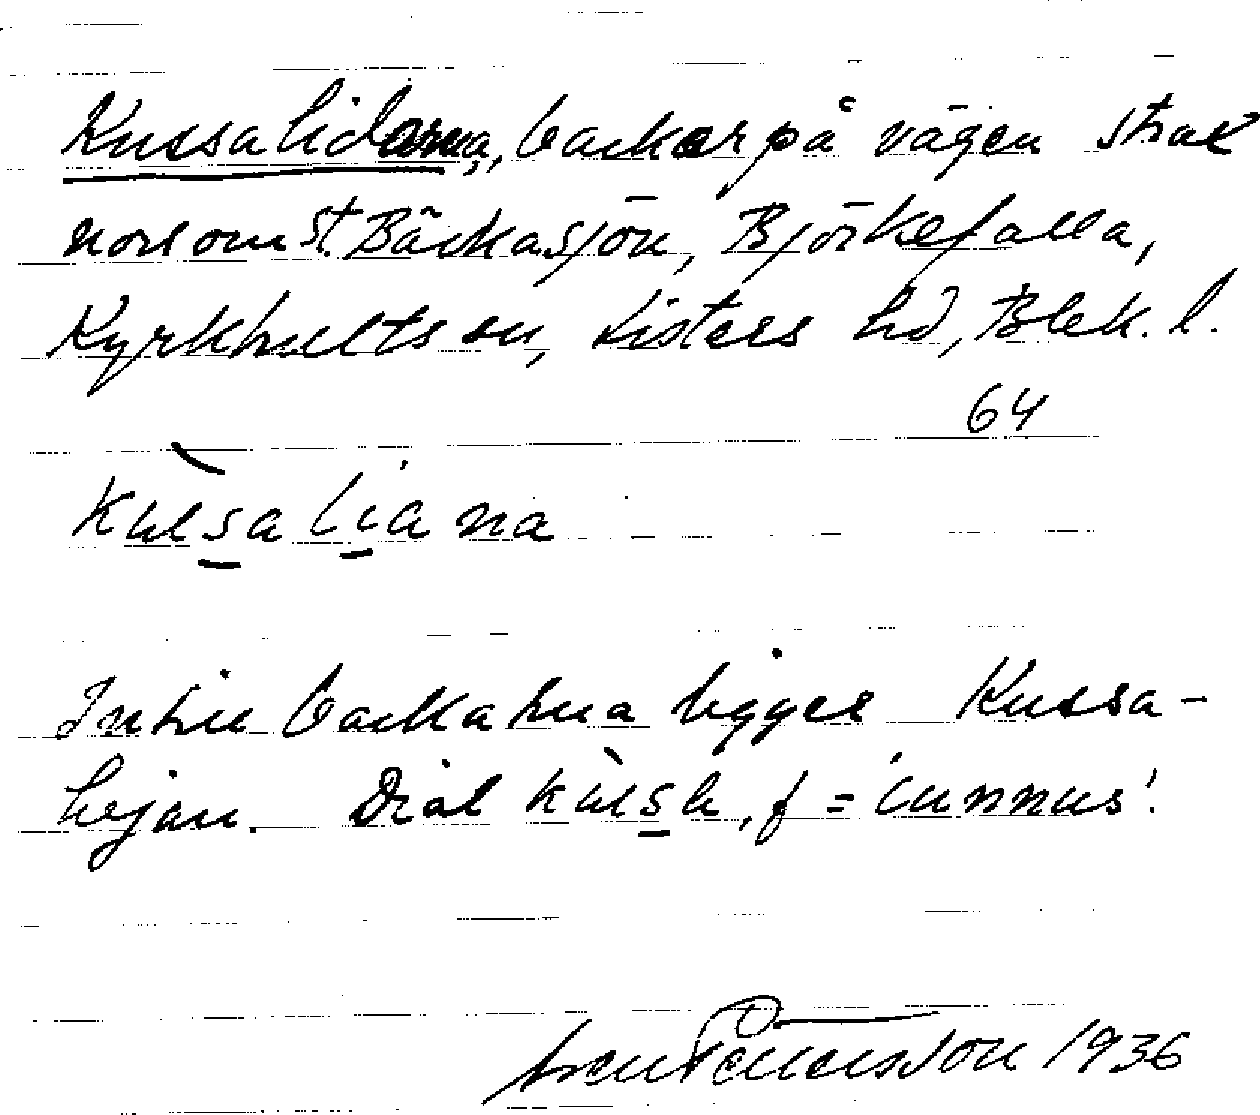 Kussalidarna, backar på vägen strax
norr om St. Bäckasjön, Björkefalla,
Kyrkhults sn, Listers hd, Blek. l.
64
kùssaliana
Intill backarna ligger Kussa-
hejan. Dial kùssa, f = 'cunnus'.
Pettersson 1936